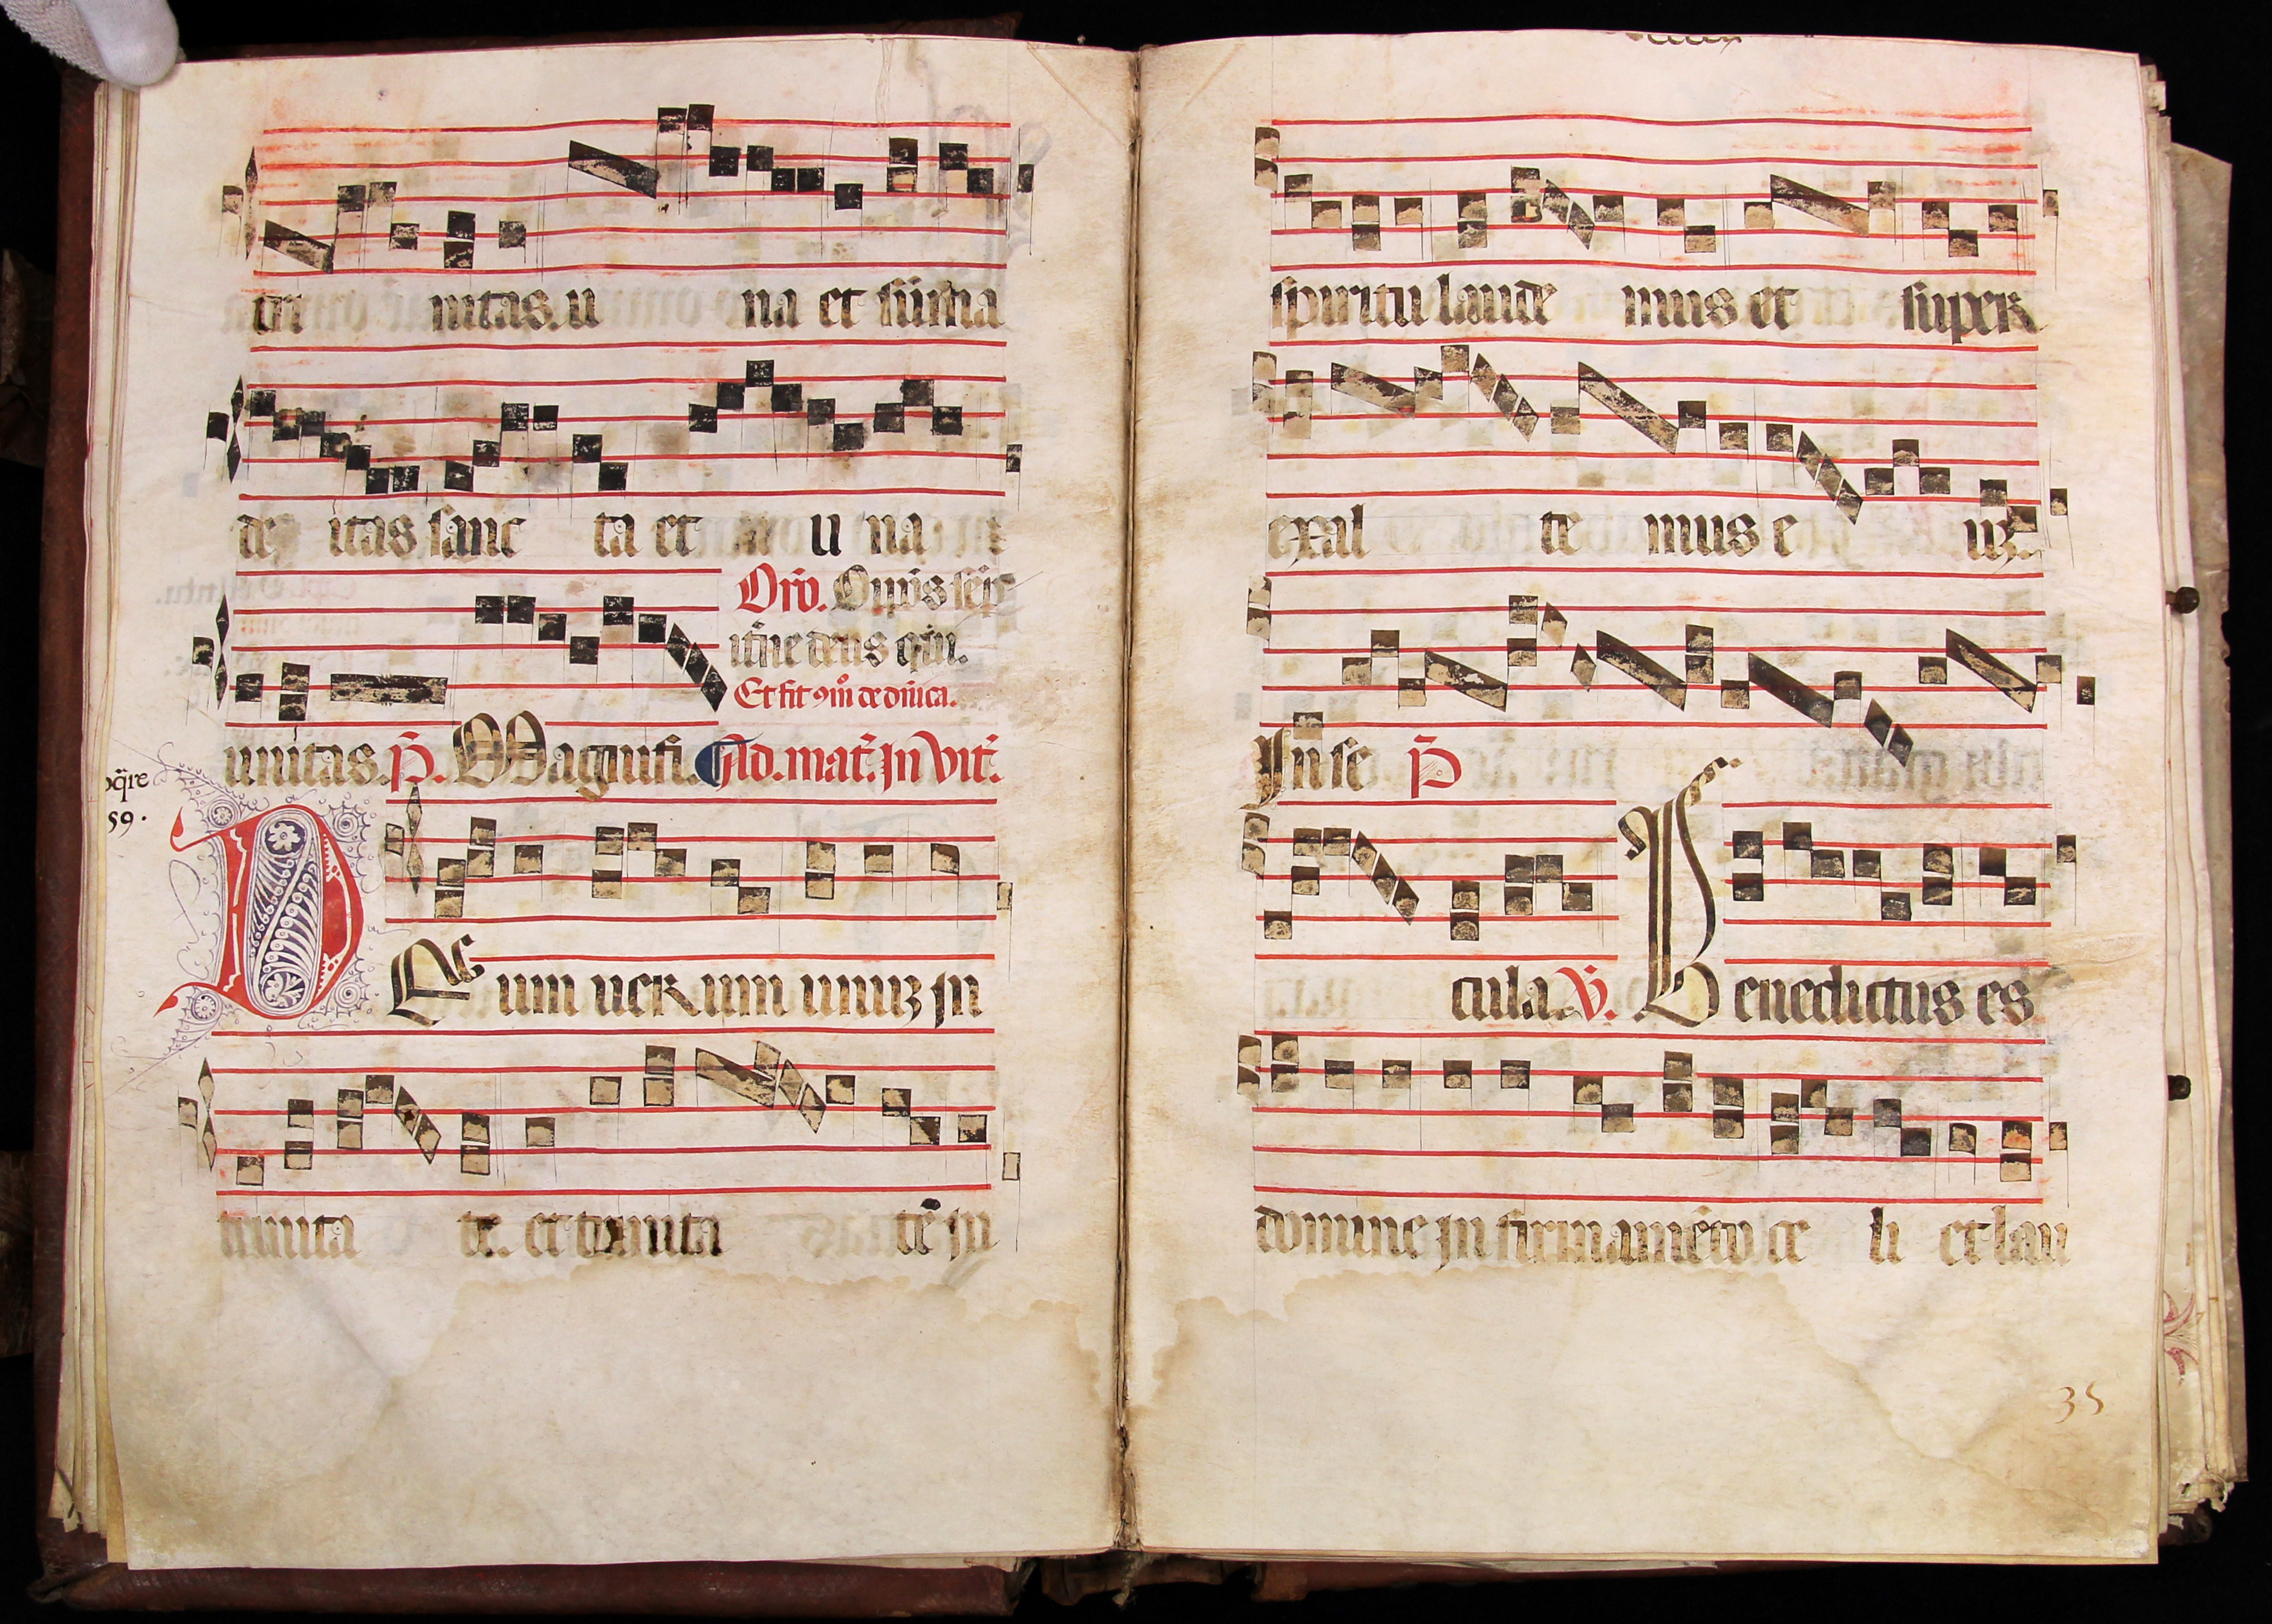 tri nitas. u na et sũma
de itas sanc ta et u na
Orõ. Oĩpõs sẽp
itrñe deus qui.
Et fit ꝯm̃ de dñica.
unitas. P̃. Magnifi. Ad. mat̃. In vit̃.
q̃re
59.
DEum uerum unuȝ in
trinita te. et trinita tẽ in
spiritu laude mus et super
exal te mus e uȝ.
In se P̃
cula. Ṽ. Benedictus es
domine in firmamẽto ce li et lau
35